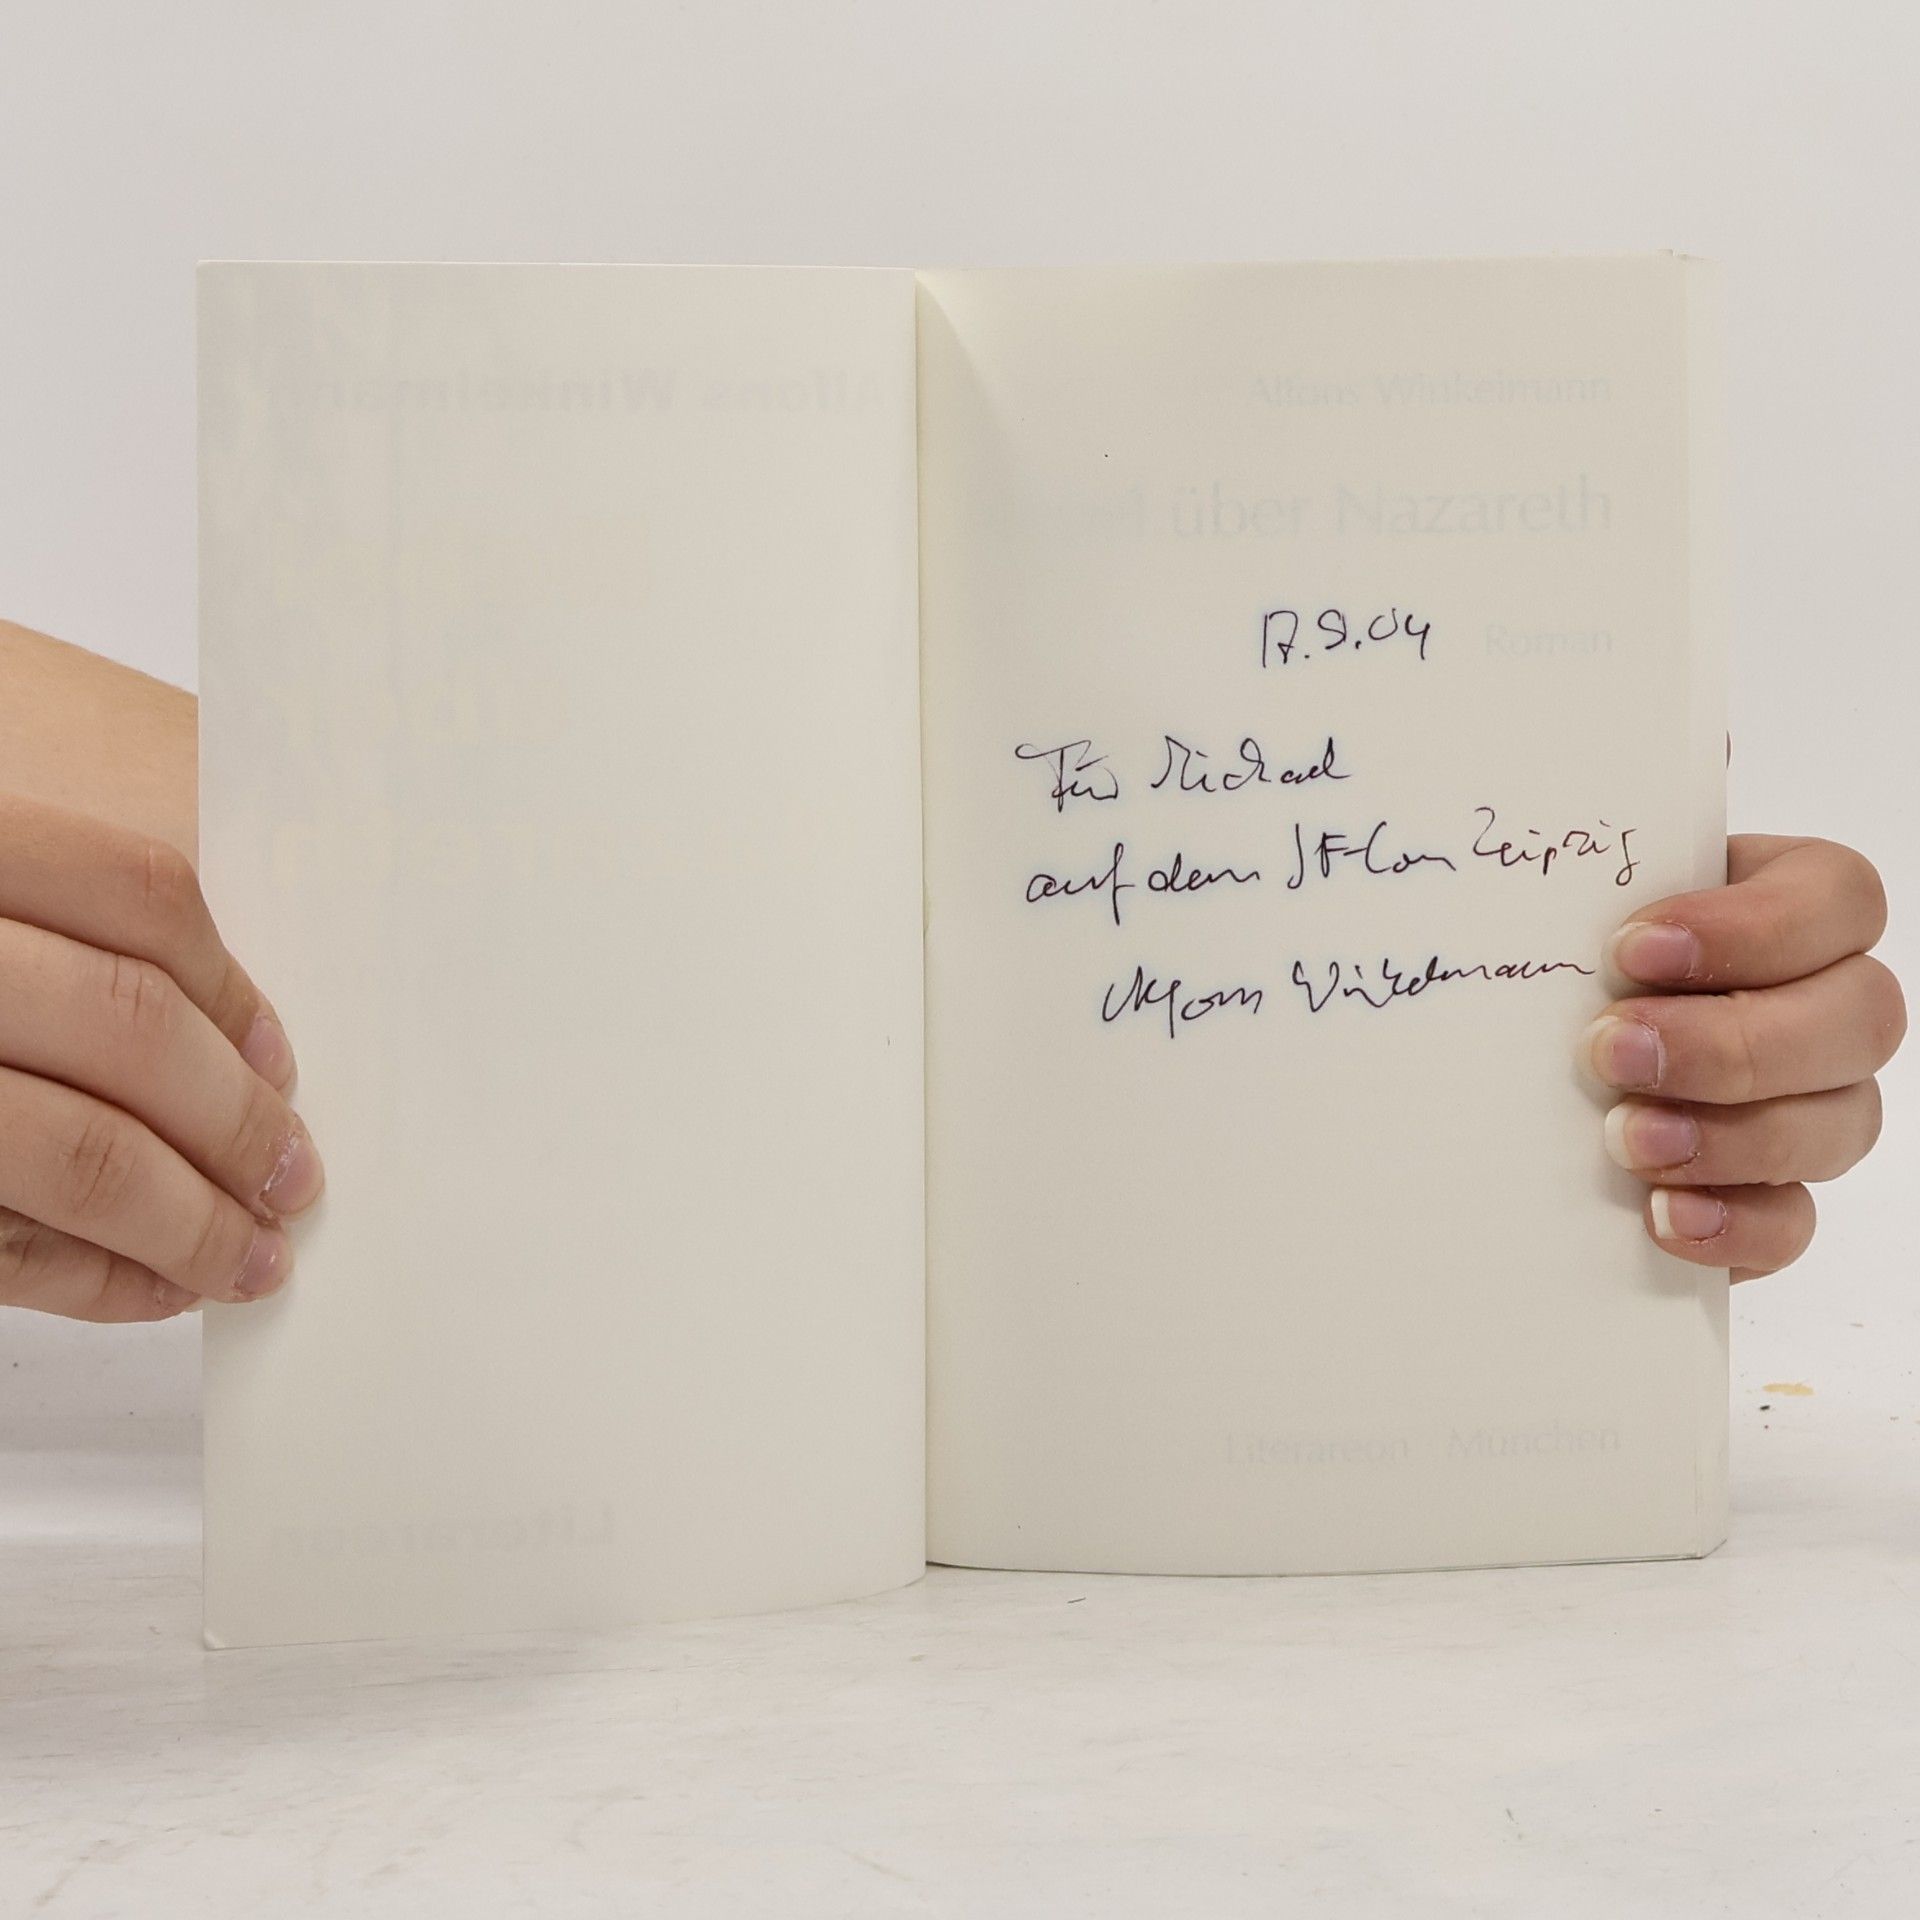 Alfons Winkelmann
Alfons Winkelmann
über Nazareth
17.9.04
Roman
Für Michael
auf dem SF-Con Leipzig
Alfons Winkelmann
Literareon München
Literareon